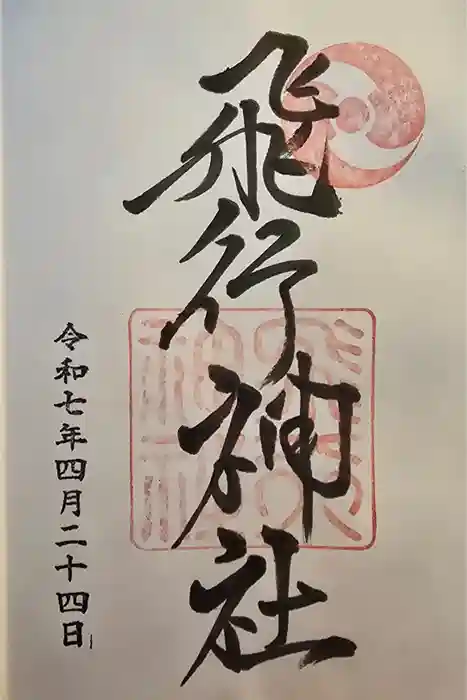 飛行神社
令和七年四月二十四日